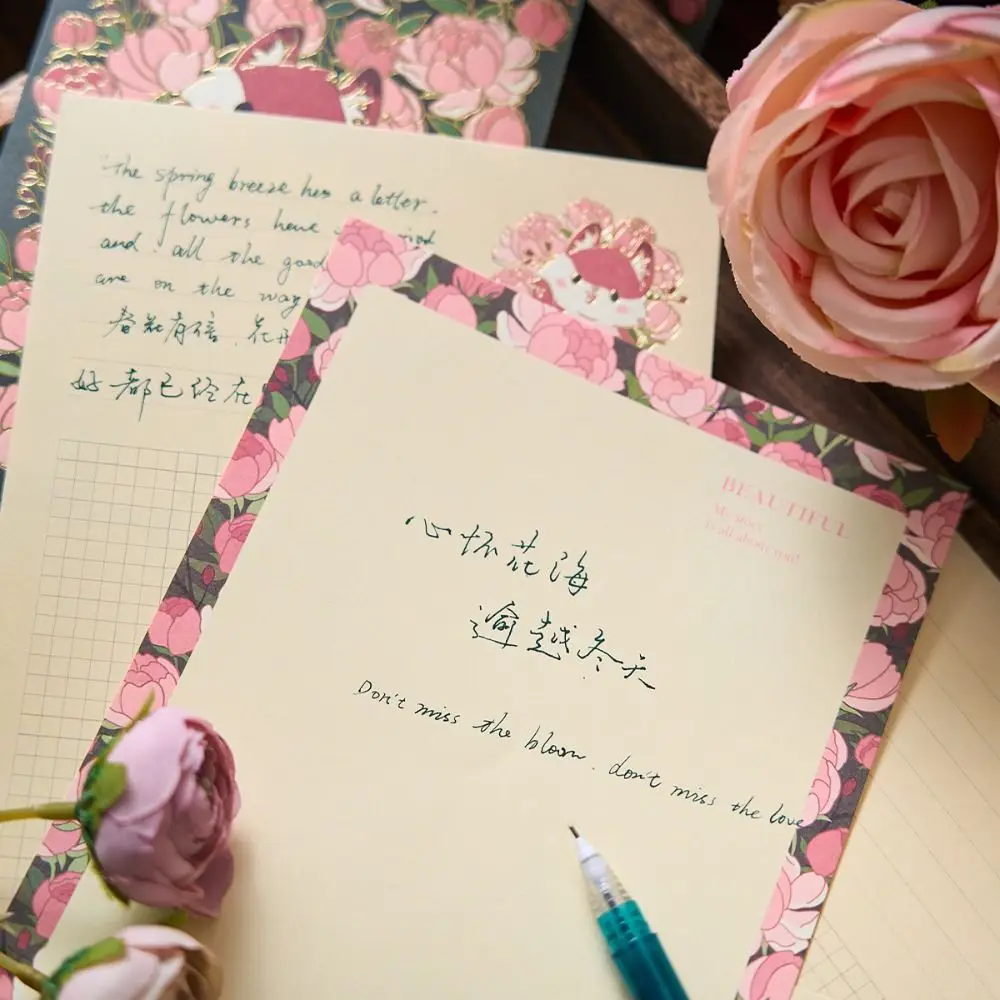 The spring breeze has a letter.
the flowers have
and all the good
are on the way
春花有信、花开
好都已经在
BEAUTIFUL
心怀花海
逾越冬天
Don't miss the bloom. don't miss the love